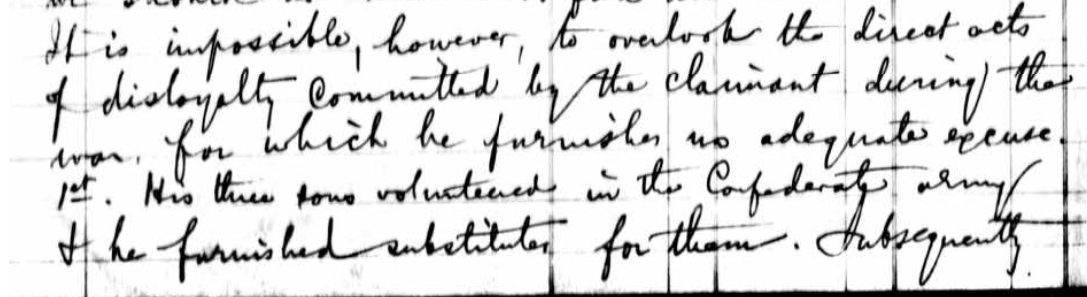 It is impossible, however, to overlook the direct acts
of disloyalty committed by the claimant during the
war, for which he furnishes no adequate excuse.
1st. His three sons volunteered in the Confederate army
& he furnished substitutes for them. Subsequently